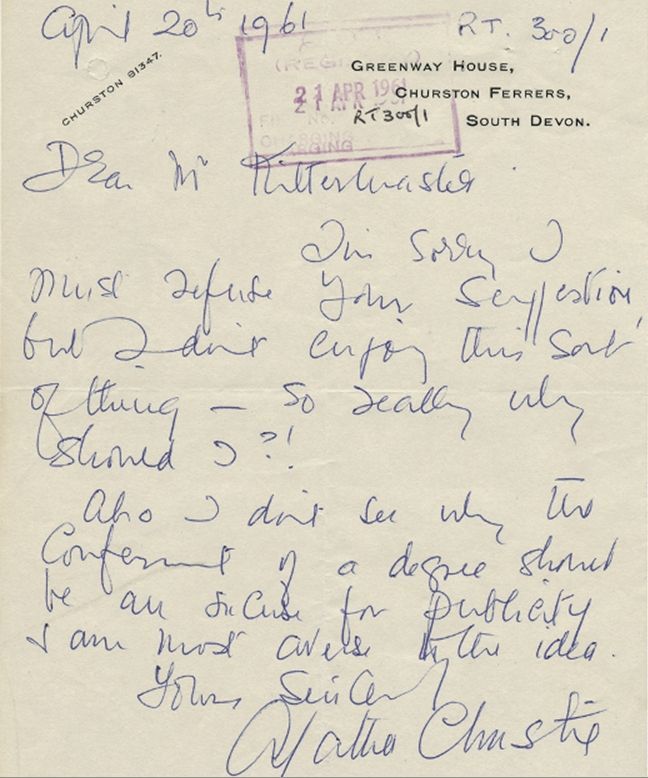 April 20th 1961
RT. 300/1
CHURSTON 81347.
GREENWAY HOUSE,
CHURSTON FERRERS,
SOUTH DEVON.
(REGI
21 APR 1961
21 APR 1961
FILE No. RT300/1
CHARGING
CHARGING
Dear Mr Kittermaster
I'm sorry I
must refuse your suggestion,
but I don't enjoy this sort
of thing — so really why
should I?!
Also I don't see why the
Conferment of a degree should
be an excuse for publicity
I am most averse to the idea.
Yours Sincerely
Agatha Christie